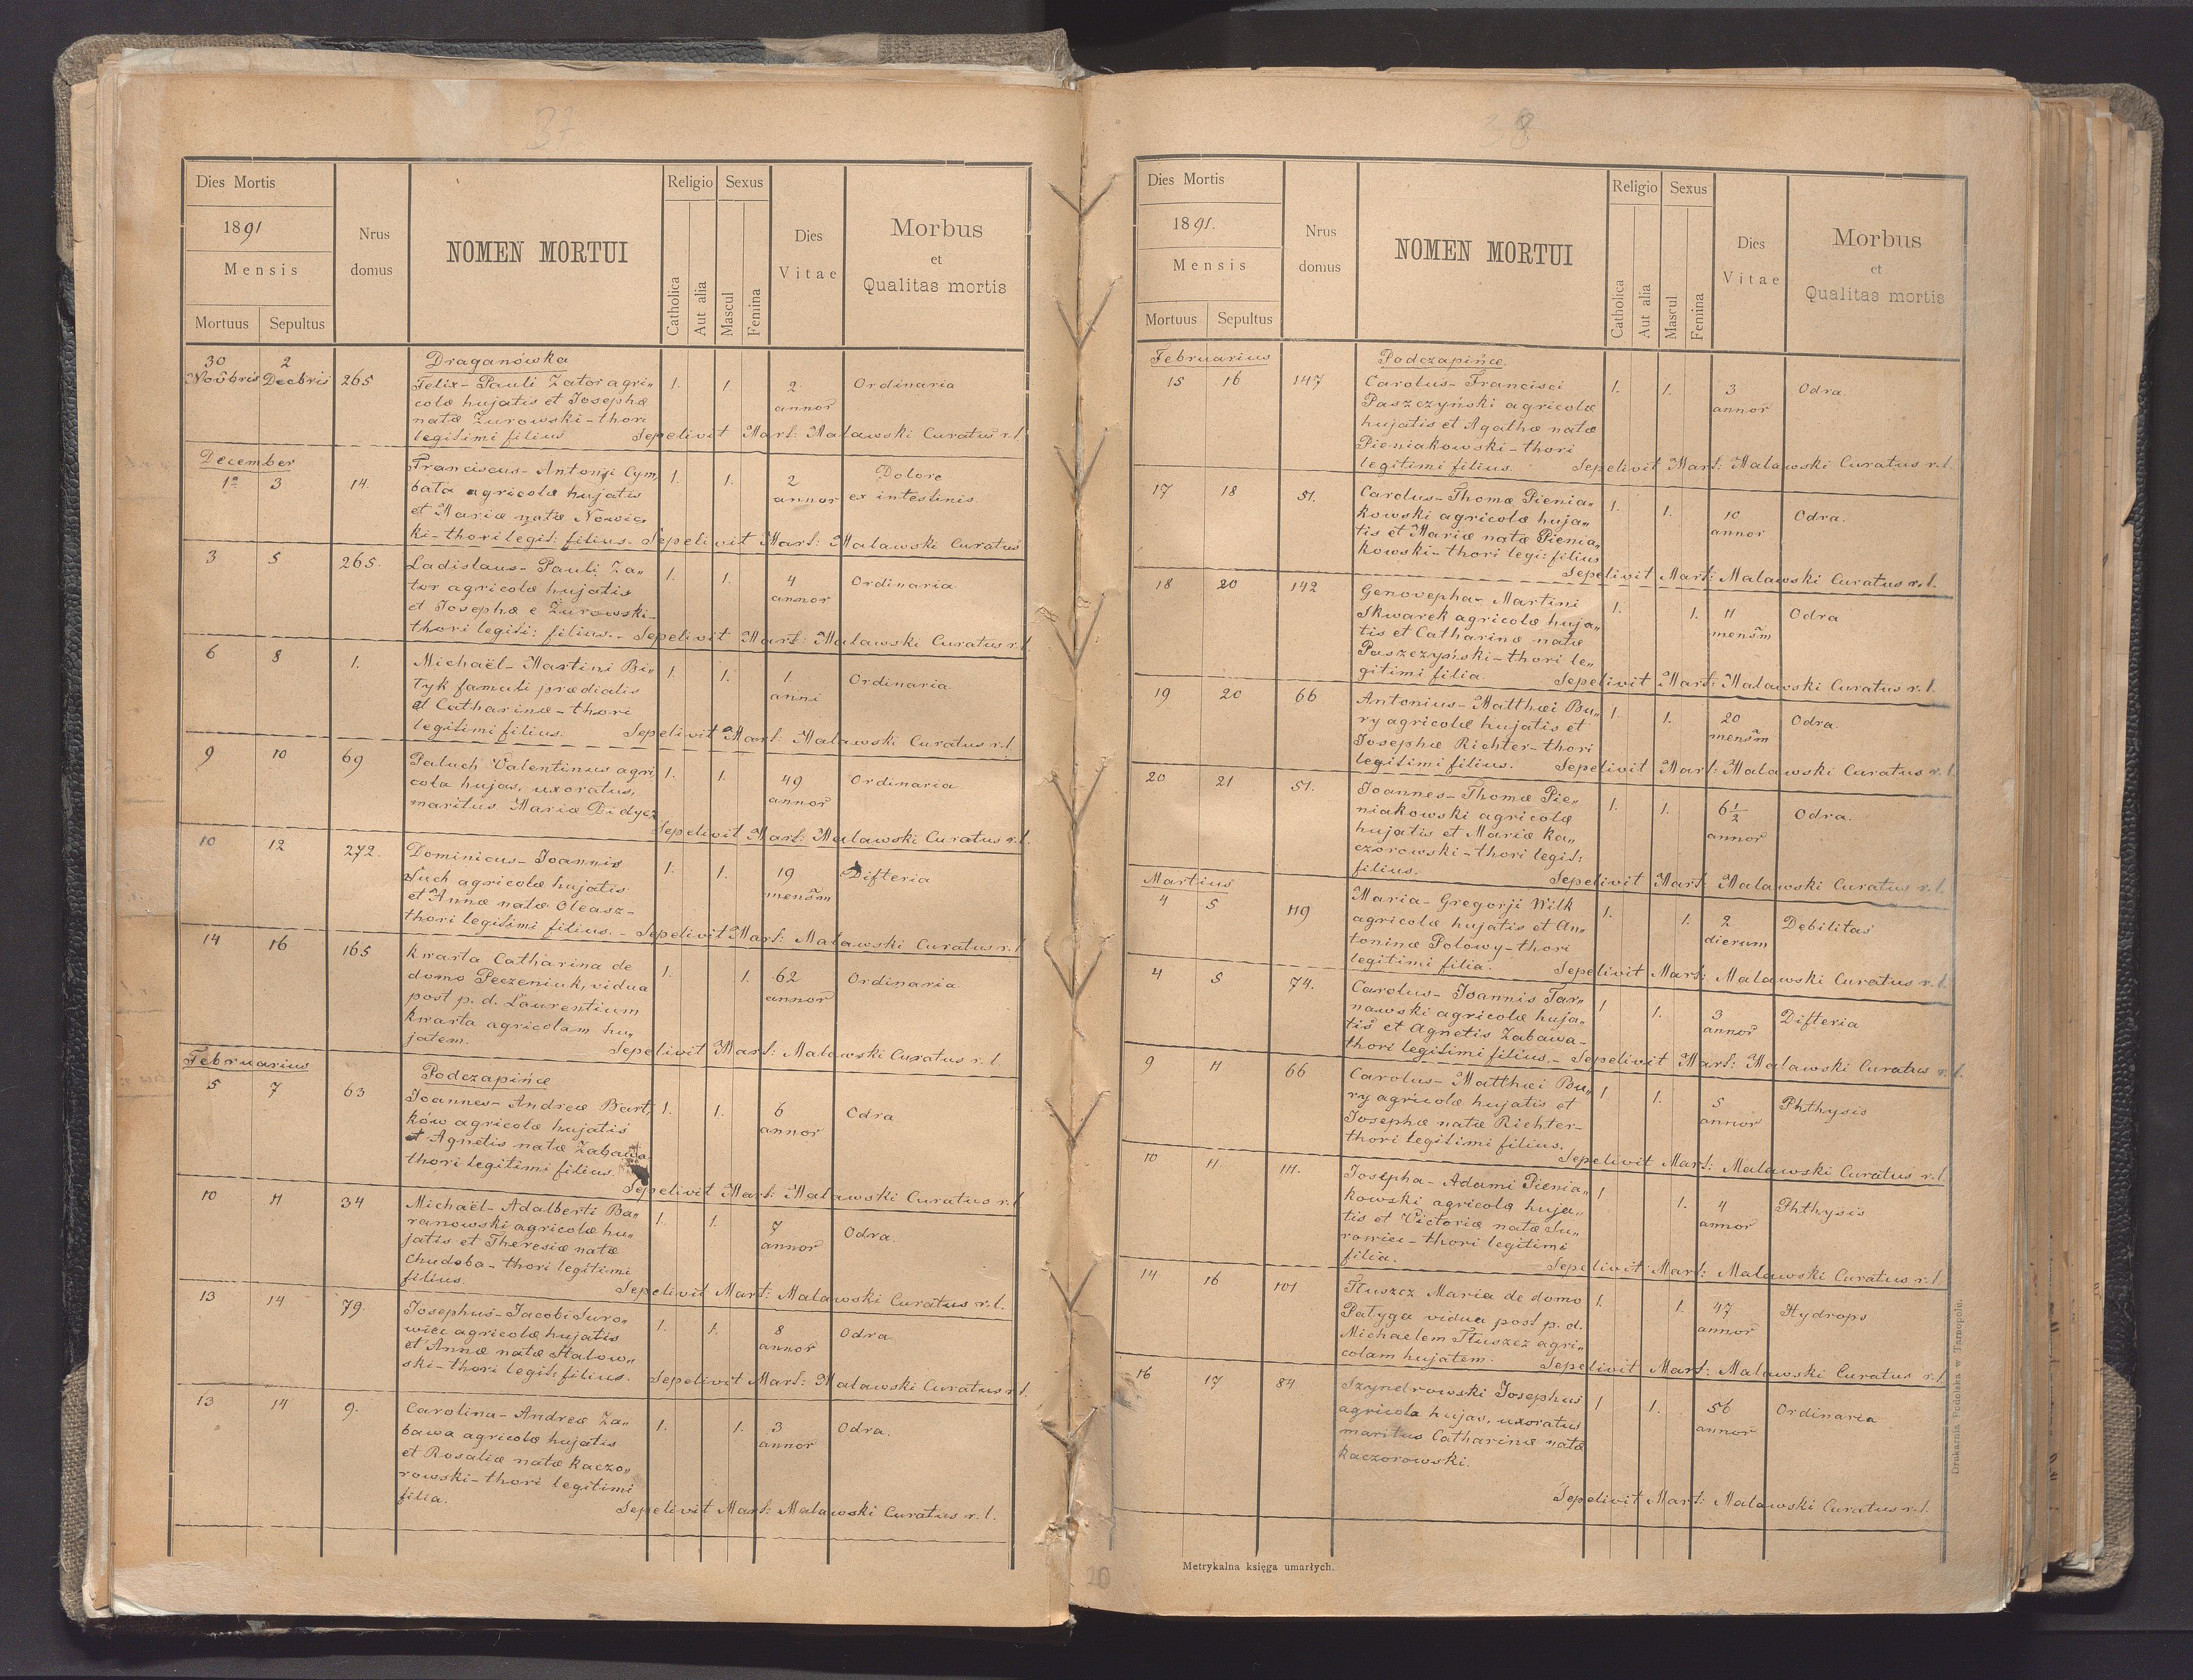 37
Dies Mortis
1891
Mensis
Mortuus Sepultus
Nrus domus
NOMEN MORTUI
Religio
Catholica
Aut alia
Sexus
Mascul
Femina
Dies Vitae
Morbus
et
Qualitas mortis
Draganówka
30 Novbris 2 Decbris 265 Felix - Pauli Zator agri„ 1. 1. 2 annor Ordinaria
colæ hujatis et Josephæ
natæ Żurowski - thori
legitimi filius Sepelivit Mart: Malawski Curatus r.l.
December
1º 3 14. Franciscus - Antonji Cym„ 1. 1. 2 annor Dolore
bała agricolæ hujatis ex intestinis
et Mariæ natæ Nowic„
ki - thori legit: filius. - Sepelivit Mart: Malawski Curatus
3 5 265. Ladislaus - Pauli Za„ 1. 1. 4 annor Ordinaria
tor agricolæ hujatis
et Josephæ e Żurowski -
thori legiti: filius. - Sepelivit Mart: Malawski Curatus r.l.
6 8 1. Michaël - Martini Bi„ 1. 1. 1. anni Ordinaria
tyk famuli prædialis
et Catharinæ - thori
legitimi filius. Sepelivit Mart: Malawski Curatus r.l.
9 10 69 Paluch Valentinus agri„ 1. 1. 49 annor Ordinaria
cola hujas, uxoratus,
maritus Mariæ Didycz
Sepelivit Mart: Malawski Curatus r.l.
10 12 272. Dominicus - Joannis 1. 1. 19 mensm Difteria
Such agricolæ hujatis
et Annæ natæ Oleasz -
thori legitimi filius. - Sepelivit Mart: Malawski Curatus r.l.
14 16 165 Kwarta Catharina de 1. 1. 62 annor Ordinaria
domo Peczeniuk, vidua
post p. d. Laurentium
Kwarta agricolam hu„
jatem. Sepelivit Mart: Malawski Curatus r.l.
Februarius
Podczapińce
5 7 63 Joannes - Andreæ Bart„ 1. 1. 6 annor Odra
ków agricolæ hujatis
et Agnetis natæ Zabawa
thori legitimi filius.
Sepelivit Mart: Malawski Curatus r.l.
10 11 34 Michaël - Adalberti Ba„ 1. 1. 7 annor Odra.
ranowski agricolæ hu„
jatis et Theresiæ natæ
Chudoba - thori legitimi
filius. Sepelivit Mart: Malawski Curatus r.l.
13 14 79. Josephus - Jacobi Suro„ 1. 1. 8 annor Odra
wiec agricolæ hujatis
et Annæ natæ Halow„
ski - thori legit: filius. Sepelivit Mart: Malawski Curatus r.l.
13 14 9. Carolina - Andreæ Za„ 1. 1. 3 annor Odra.
bawa agricolæ hujatis
et Rosaliæ natæ Kaczo„
rowski - thori legitimi
filia. Sepelivit Mart: Malawski Curatus r.l.
38
Dies Mortis
1891.
Mensis
Mortuus Sepultus
Nrus domus
NOMEN MORTUI
Religio
Catholica
Aut alia
Sexus
Mascul
Femina
Dies Vitae
Morbus
et
Qualitas mortis
Februarius
Podczapińce.
15 16 147 Carolus - Francisci 1. 1. 3 annor Odra.
Paszczyński agricolæ
hujatis et Agathæ natæ
Pieniakowski - thori
legitimi filius. Sepelivit Mart: Malawski Curatus r.l.
17 18 51. Carolus - Thomæ Pienia„ 1. 1. 10 annor Odra.
kowski agricolæ huja„
tis et Mariæ natæ Pienia„
kowski - thori legi: filius
Sepelivit Mart: Malawski Curatus r.l.
18 20 142 Genovepha - Martini 1. 1. 11 mensm Odra
Skwarek agricolæ huja„
tis et Catharinæ natæ
Paszczyński - thori le„
gitimi filia. Sepelivit Mart: Malawski Curatus r.l.
19 20 66 Antonius - Matthæi Bu„ 1. 1. 20 mensm Odra.
ry agricolæ hujatis et
Josephæ Richter - thori
legitimi filius. Sepelivit Mart: Malawski Curatus r.l.
20 21 51. Joannes - Thomæ Pie„ 1. 1. 6 1/2 annor Odra.
niakowski agricolæ
hujatis et Mariæ Ka„
czorowski - thori legit:
filius. Sepelivit Mart: Malawski Curatus r.l.
Martius
4 5 119 Maria - Gregorji Wilk 1. 1. 2 dierum Debilitas
agricolæ hujatis et An„
toninæ Polowy - thori
legitimi filia. Sepelivit Mart: Malawski Curatus r.l.
4 5 74. Carolus - Joannis Tar„ 1 1. 3 annor Difteria
nawski agricolæ huja„
tis et Agnetis Zabawa -
thori legitimi filius. - Sepelivit Mart: Malawski Curatus r.l.
9 11 66 Carolus - Matthæi Bu„ 1 1. 5 annor Phthysis
ry agricolæ hujatis et
Josephæ natæ Richter -
thori legitimi filius.
Sepelivit Mart: Malawski Curatus r.l.
10 11 111. Josepha - Adami Pienia„ 1 1. 4 annor Phthysis
kowski agricolæ huja„
tis et Victoriæ natæ Su„
rowiec - thori legitimi
filia. Sepelivit Mart: Malawski Curatus r.l.
14 16 101 Tłuszcz Maria de domo 1. 1. 47 annor Hydrops
Patyga vidua post p. d.
Michaelem Tłuszcz agri„
colam hujatem. Sepelivit Mart: Malawski Curatus r.l.
16 17 84 Szyndrowski Josephus 1 1. 56 annor Ordinaria
agricola hujas, uxoratus
maritus Catharinæ natæ
Kaczorowski.
Sepelivit Mart: Malawski Curatus r.l.
Metrykalna księga umarłych.
Drukarnia Podolska w Tarnopolu.
20